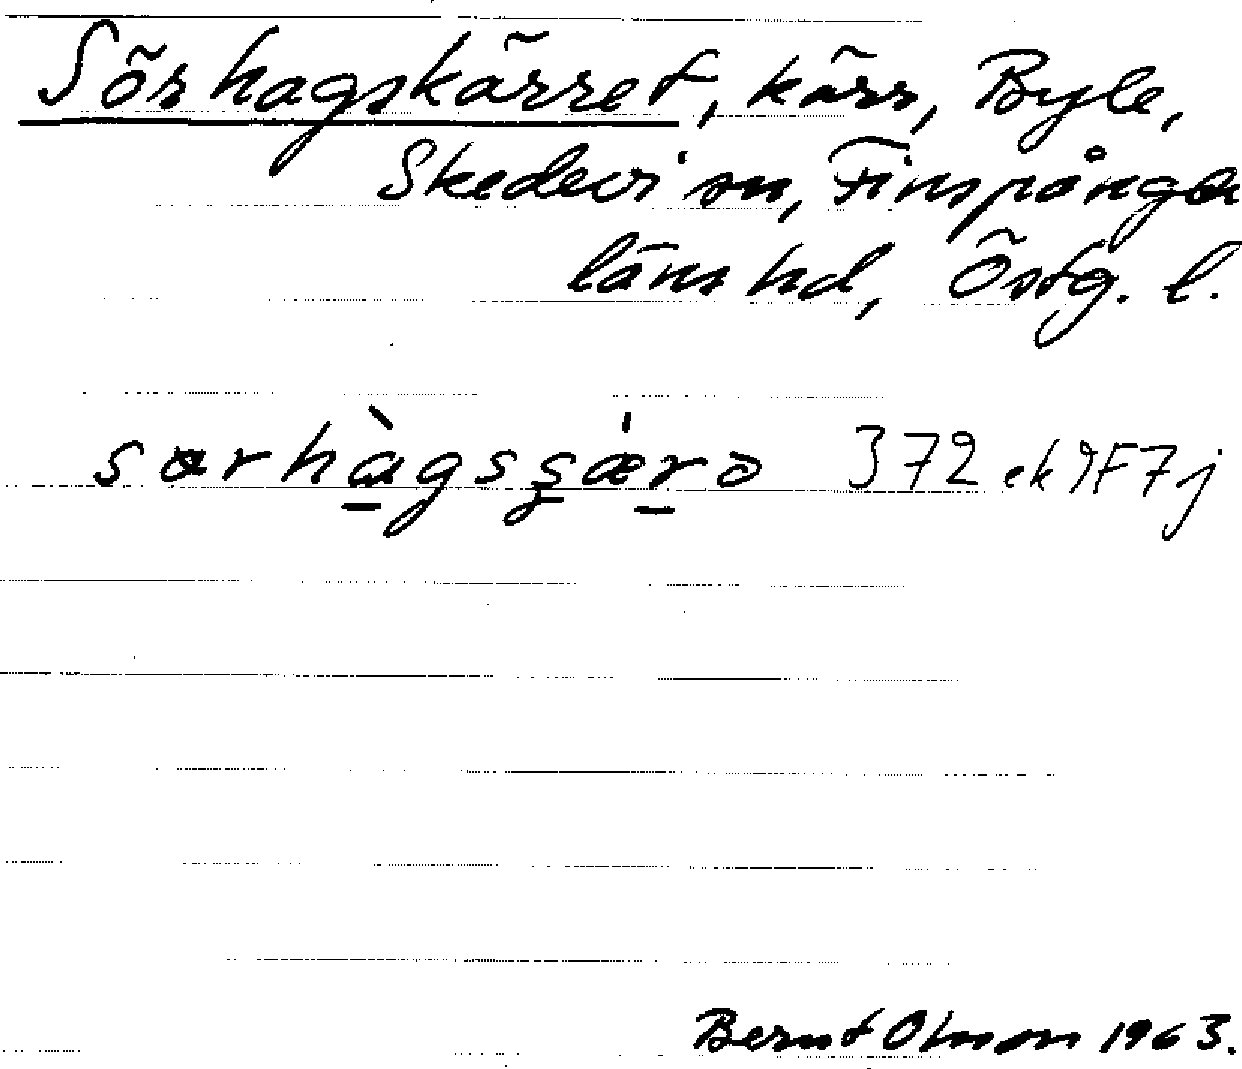 Sörhagskärret, kärr, Byle,
Skedevi sn, Finspånga
läns hd, Östg. l.
sørhàgsʂǽrə 372 ek 9F7j
Bernt Olsson 1963.